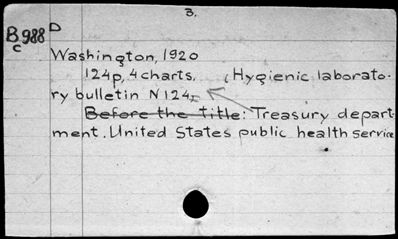 3.
D
B988
c
Washington, 1920
124p, 4 charts, (Hygienic laborato-
ry bulletin N 124
Before the title: Treasury depart-
ment. United States public health service